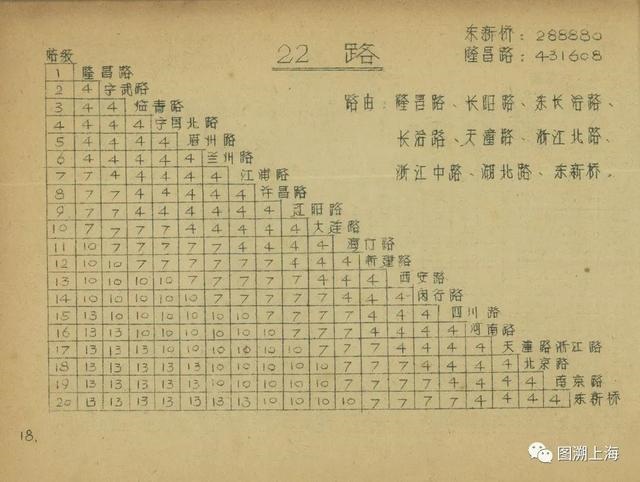 22 路
东新桥: 288880
隆昌路: 431608
路由: 隆昌路、长阳路、东长治路、
长治路、天潼路、浙江北路、
浙江中路、湖北路、东新桥.
站级
1 隆昌路
2 4 宁武路
3 4 4 临青路
4 4 4 4 宁国北路
5 4 4 4 4 眉州路
6 4 4 4 4 4 兰州路
7 7 4 4 4 4 4 江浦路
8 7 7 4 4 4 4 4 许昌路
9 7 7 4 4 4 4 4 4 辽阳路
10 7 7 7 7 4 4 4 4 4 大连路
11 10 7 7 7 7 7 4 4 4 4 海门路
12 10 10 7 7 7 7 7 7 4 4 4 新建路
13 10 10 10 10 7 7 7 7 7 4 4 4 西安路
14 10 10 10 10 7 7 7 7 7 7 4 4 4 闵行路
15 13 10 10 10 10 10 7 7 7 7 4 4 4 4 四川路
16 13 13 10 10 10 10 10 10 7 7 7 4 4 4 4 河南路
17 13 13 13 10 10 10 10 10 10 7 7 4 4 4 4 4 天潼路浙江路
18 13 13 13 13 13 10 10 10 10 7 7 7 4 4 4 4 4 北京路
19 13 13 13 13 13 10 10 10 10 10 7 7 7 4 4 4 4 4 南京路
20 13 13 13 13 13 13 13 10 10 10 10 7 7 7 7 4 4 4 4 东新桥
18.
图溯上海